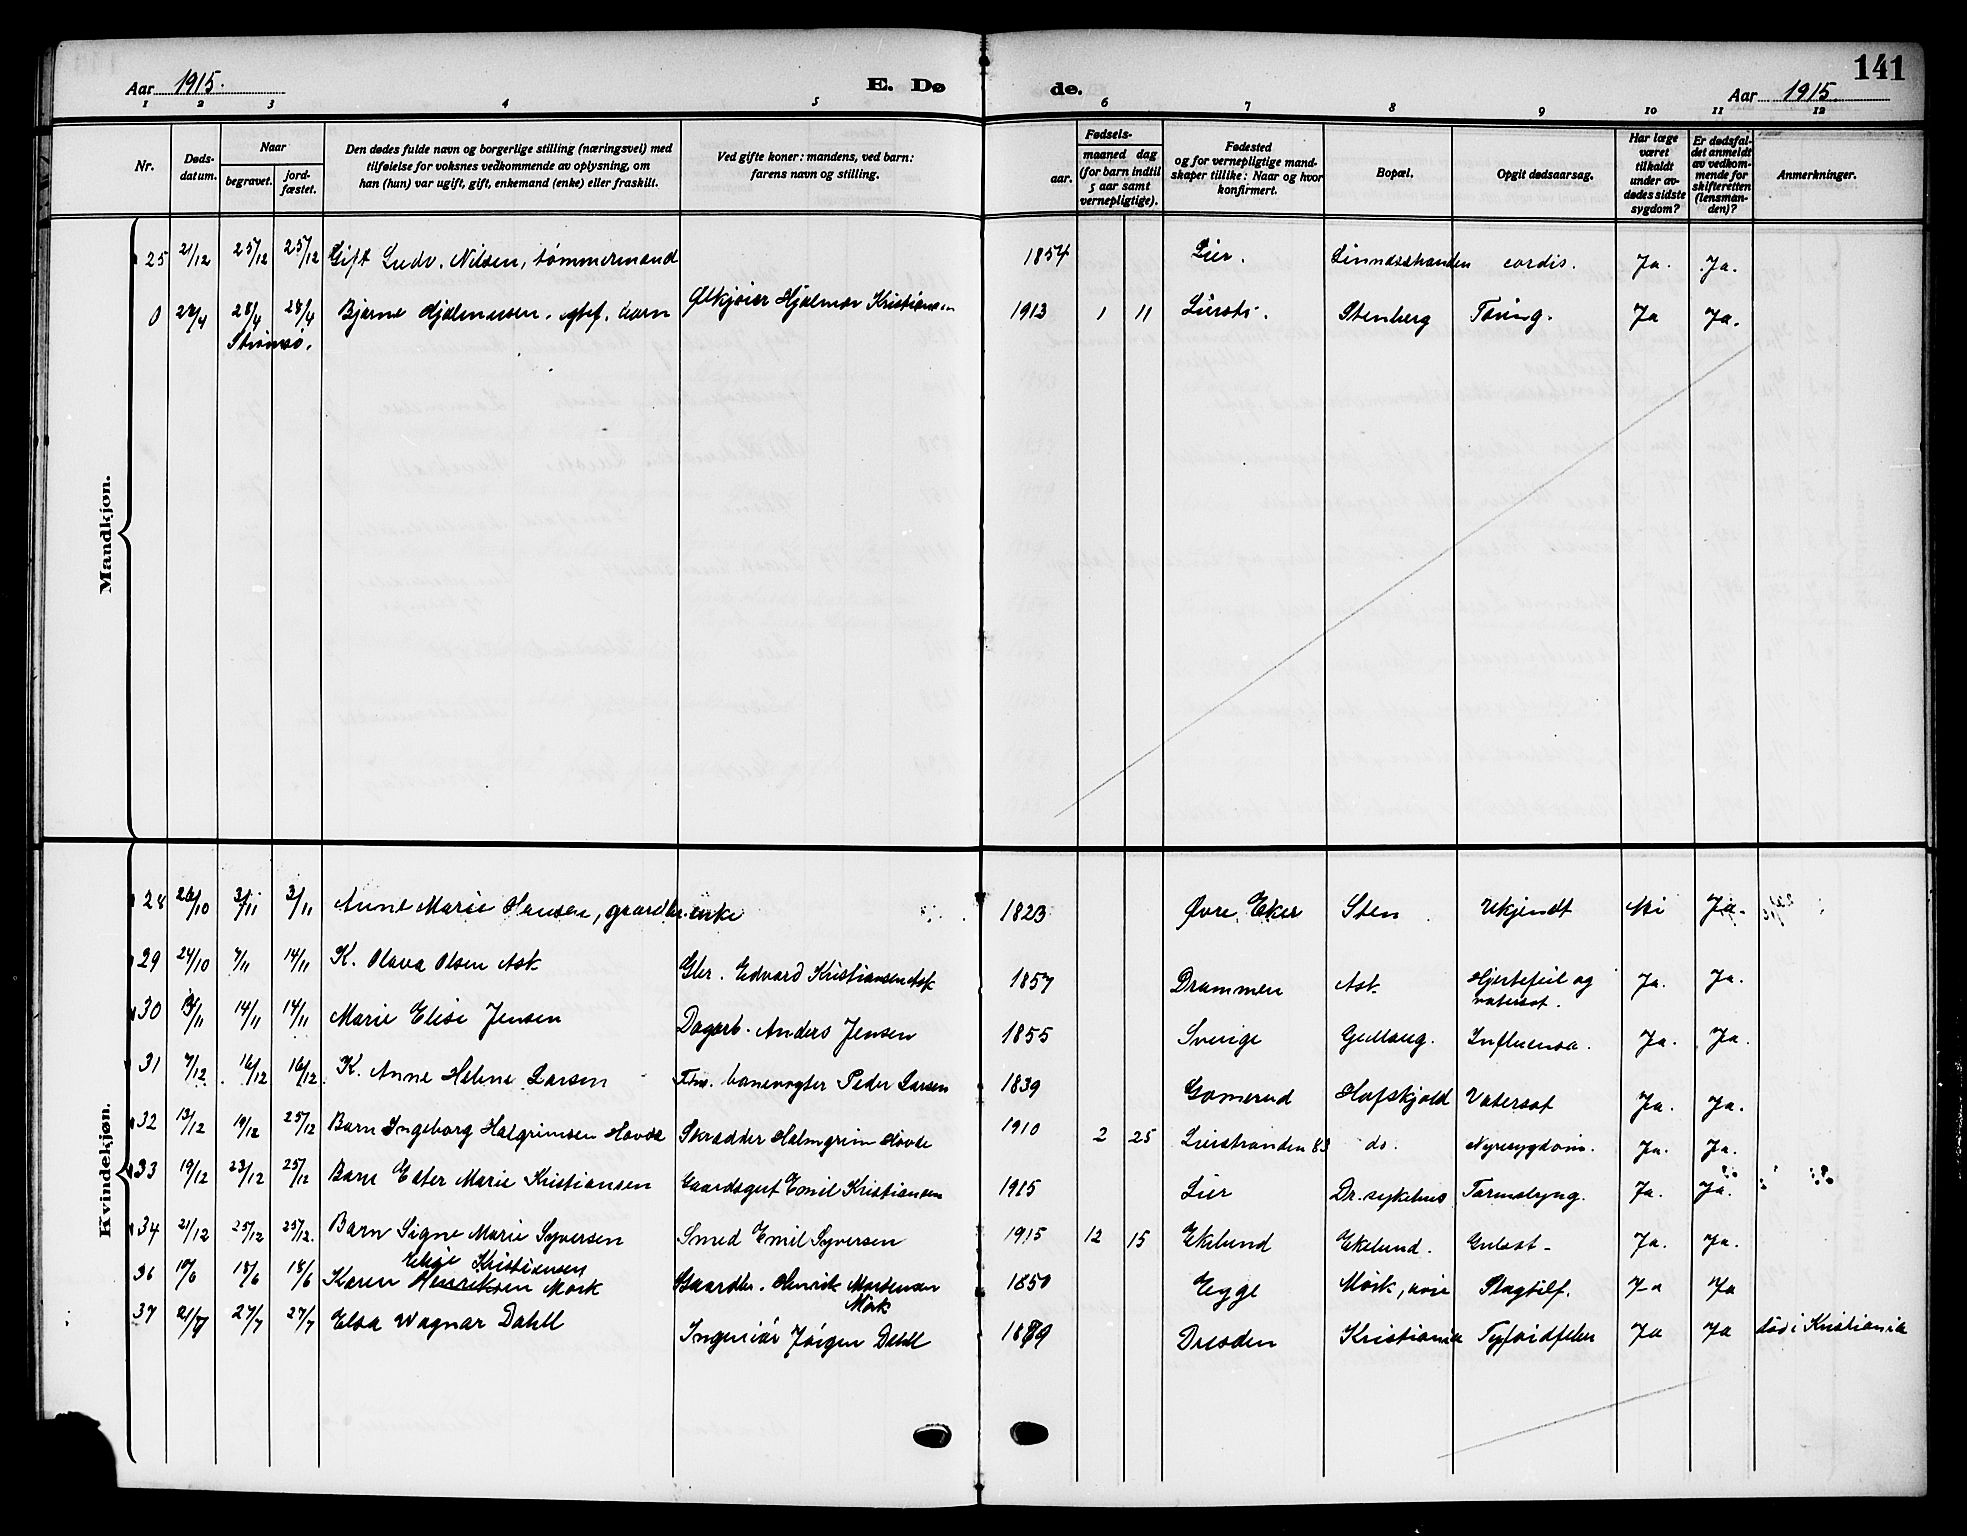 141
Aar 1915.
E. Dø
de.
Aar 1915.
1 2 3 4 5 6 7 8 9 10 11 12
Nr.
Døds-
datum.
Naar
begravet.
jord-
fæstet.
Den dødes fulde navn og borgerlige stilling (næringsvei) med
tilføielse for voksnes vedkommende av oplysning, om
han (hun) var ugift, gift, enkemand (enke) eller fraskilt.
Ved gifte koner: mandens, ved barn:
farens navn og stilling.
Fødsels-
aar.
maaned dag
(for barn indtil
5 aar samt
vernepligtige).
Fødested
og for vernepligtige mand-
skaper tillike: Naar og hvor
konfirmert.
Bopæl.
Opgit dødsaarsag.
Har læge
været
tilkaldt
under av-
dødes sidste
sygdom?
Er dødsfal-
det anmeldt
av vedkom-
mende for
skifteretten
(lensman-
den)?
Anmerkninger.
Mandkjøn.
25 21/12 25/12 25/12 Gift Ludv. Nilsen, tømmermand 1854 Lier. Linnesstranden cordis. Ja. Ja.
0 28/4 28/4 Bjarne Hjalmarsen. barn Ølkjører Hjalmar Kristiansen 1913 1 11 Lierstr. Stenberg Tæring. Ja Ja.
Strømsø.
Kvindekjøn.
28 3/11 3/11 Anne Marie Hansen, gaardbr. enke 1823 Øvre Eker Sten Ukjendt Nei Ja.
29 24/10 7/11 14/11 K. Olava Olsen Ask Gbr. Edvard Kristiansen Ask 1857 Drammen Ask Hjertefeil og
vatersot. Ja. Ja.
30 14/11 14/11 Marie Elise Jensen Dagarb. Anders Jensen 1855 Sverige Gullaug. Influensa. Ja. Ja.
31 7/12 16/12 16/12 K. Anne Helene Larsen Fhv. banevogter Peder Larsen 1839 Gomerud Hafskjold Vatersot Ja. Ja.
32 13/12 19/12 25/12 Barn Ingeborg Halgrimsen Hovde Skrædder Halmgrim Hovde 1910 2 25 Lierstranden 83 do. Nyresygdom. Ja. Ja.
33 19/12 23/12 25/12 Barn Ester Marie Kristiansen Gaardsgut Emil Kristiansen 1915 Lier Dr. sykehus Tarmslyng. Ja. Ja.
34 21/12 25/12 25/12. Barn Signe Marie Syversen Smed Emil Syversen 1915 12 15 Ekelund Ekelund. Gulsot Ja. Ja.
Elise Kristiansen
36 18/6 18/6 Karen Henriksen Mørk Gaardbr. Henrik Mortensen
Mørk 1850 Mørk, øvre Slagtilf. Ja Ja
37 27/7 27/7 Elsa Wagnar Dahll Ingeniør Jörgen Dahll Dresden Kristiania Tyfoidfeber Ja Ja død i Kristiania